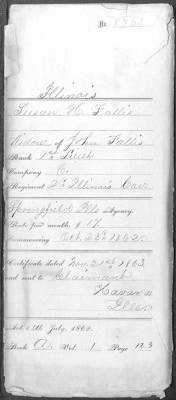 No. 8501
Illinois
Susan H. Fallis
Widow of John Fallis
Rank 1st Lieut
Company C.
Regiment 2d Illinois Cav.
Springfield Ills Agency.
Rate per month, $17
Commencing Oct. 23d 1862.
Certificate dated Nov. 21st 1863
and sent to Claimant
Havana
Illson
Act 14th July, 1862.
Book A. Vol. 1 Page 123